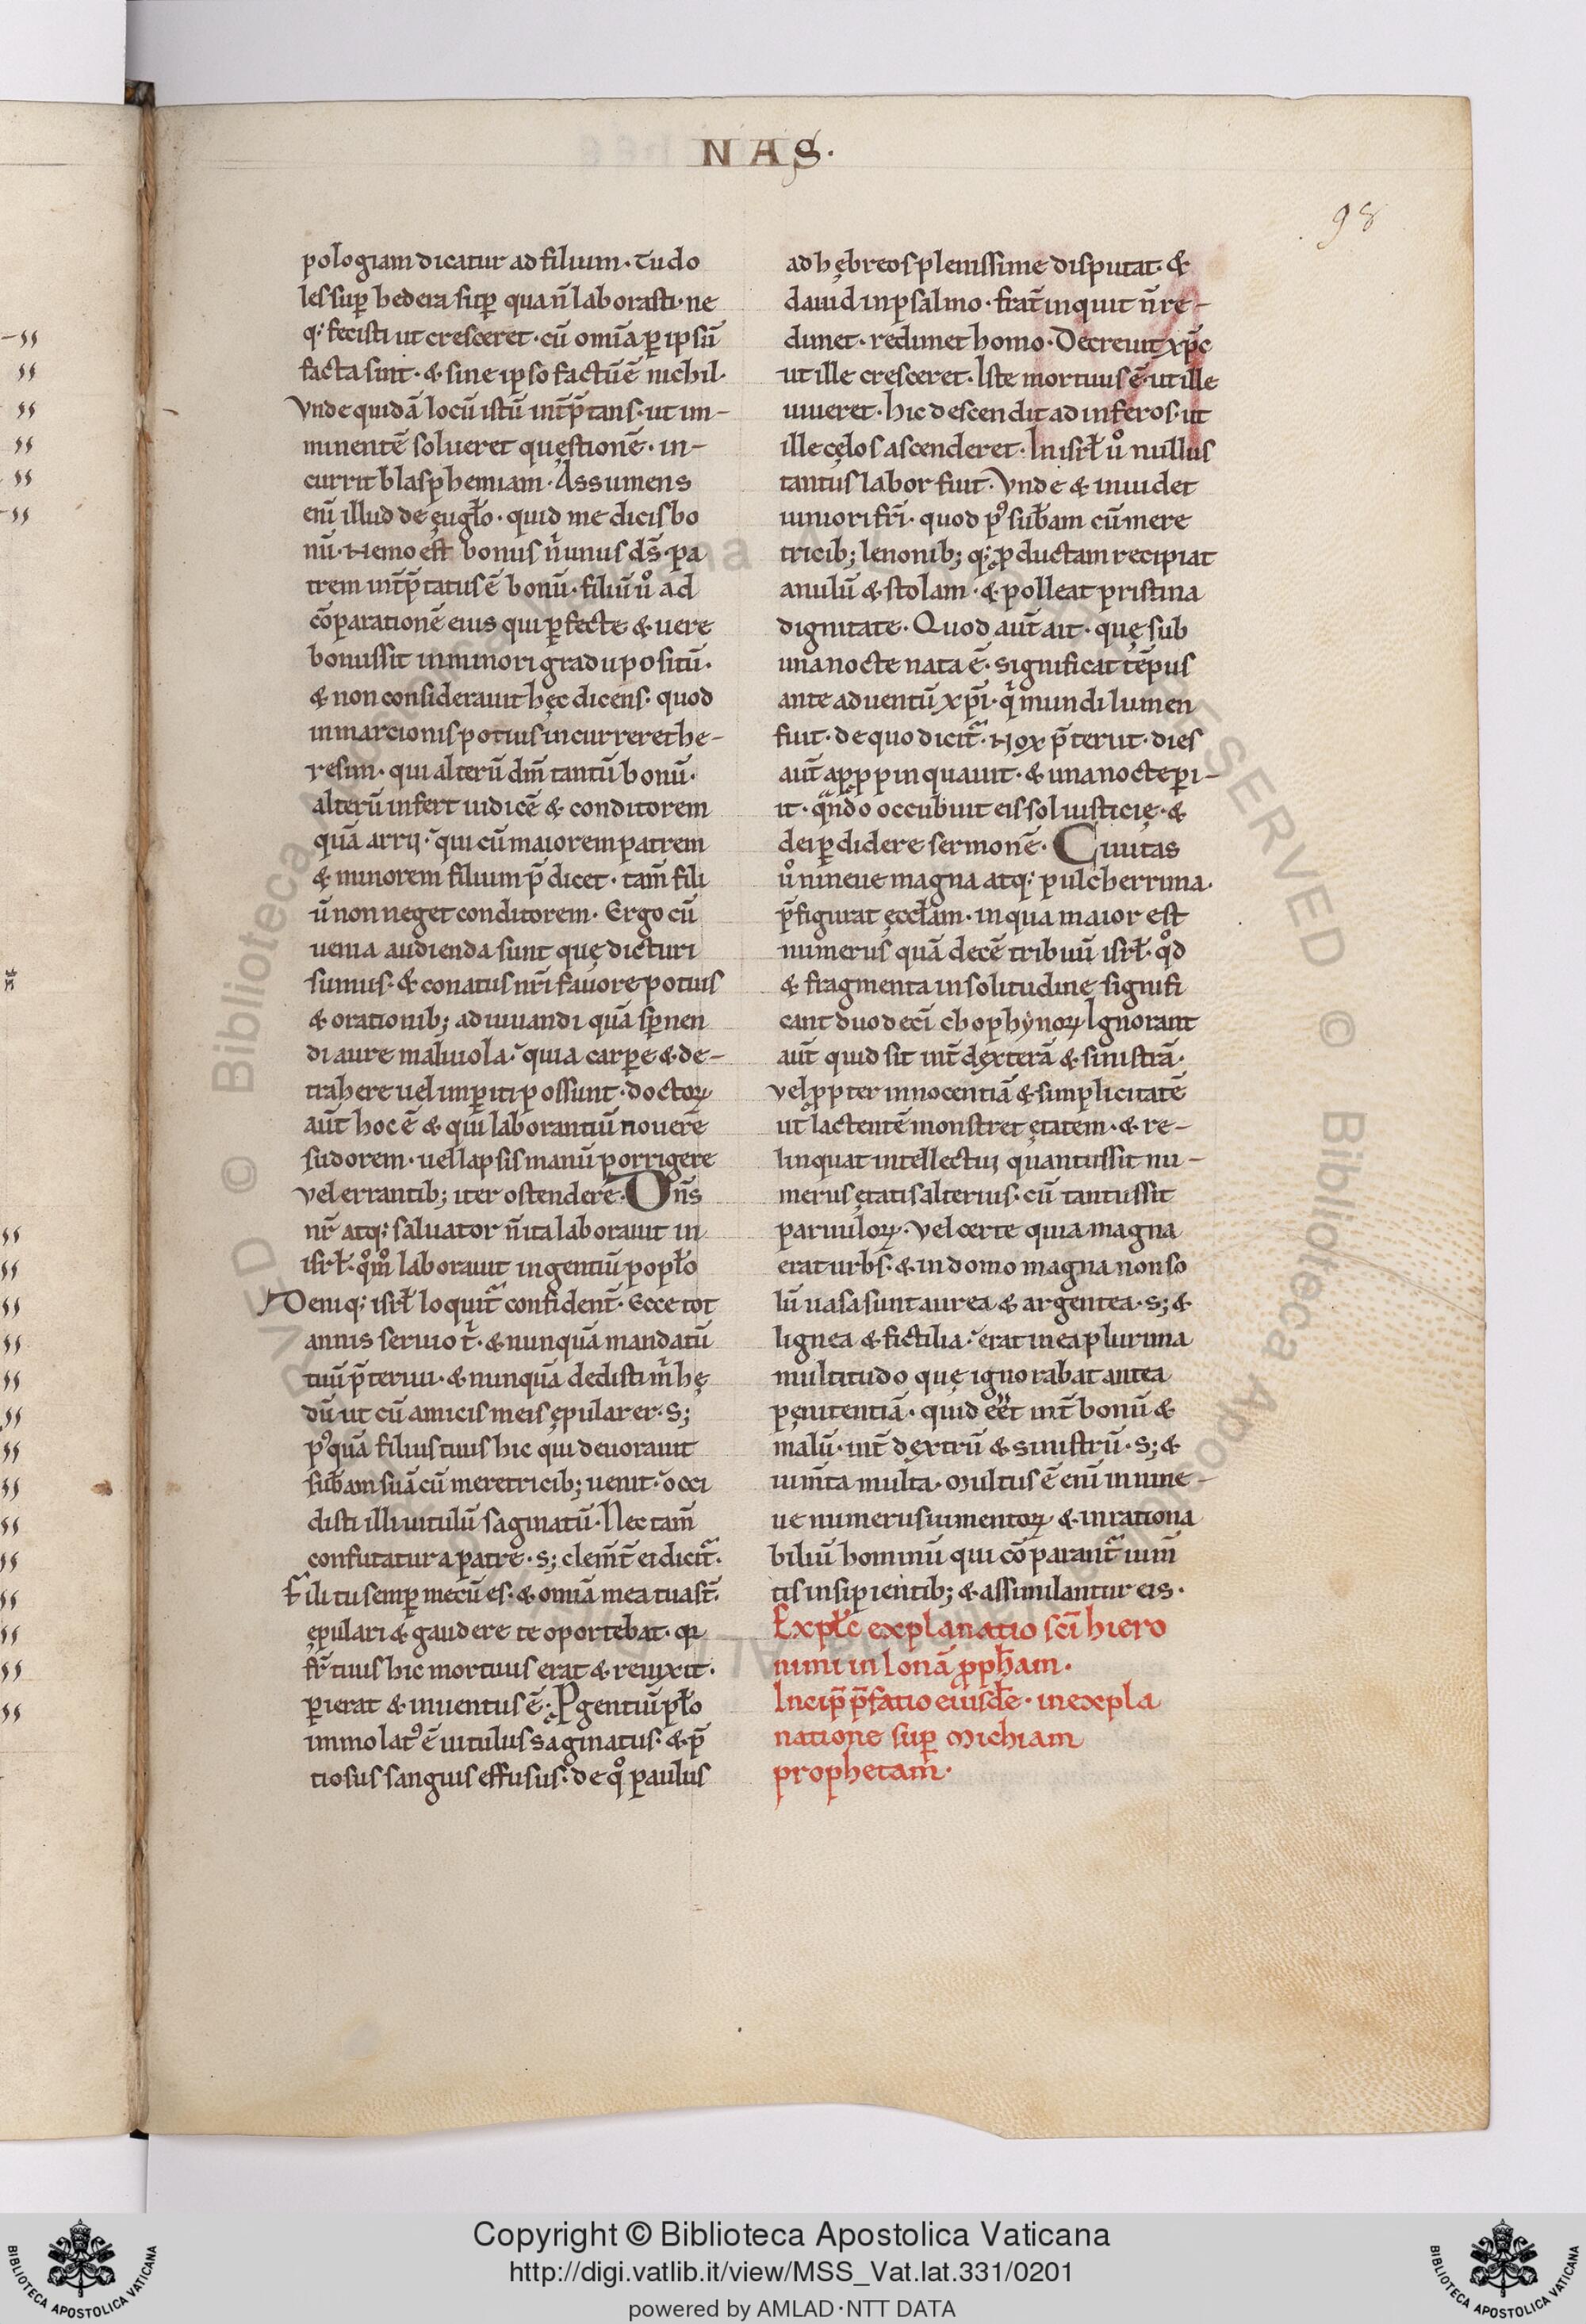 NAS.
98
pologiam dicatur ad filium· Tu do
les sup̄ hedera sup̄ qua ñ laborasti· ne
q; fecisti ut cresceret· cū om̄ia p̱ ipsū
facta sint· & sine ipso factū ē nichil·
Vnde quidā locū istū int̄p̄tans· ut im-
minentē solueret quęstionē· in-
currit blasphemiam· Assumens
enī illud de ęugło· quid me dicis bo
nū· Nemo est bonus n̄ unus ds̄· pa
trem int̄p̄tatus ē bonū· filiū ů ad
cōparationē eius qui p̱fecte & uere
bonus sit in minori gradu positū·
& non considerauit hęc dicens· quod
in marcionis potius incurreret he-
resim· qui alterū dm̄ tantū bonū·
alterū infert iudicē & conditorem
quā arrii· qui cū maiorem patrem
& minorem filium p̄dicet· tam̄ fili
ū non neget conditorem· Ergo cū
uenia audienda sunt quę dicturi
sumus· & conatus nr̄i fauore potius
& orationib; adiuuandi quā sp̱nen
di aure maliuola· quia carpe & de-
trahere uel imp̱iti possunt· doctoꝝ
aut̄ hoc ē & qui laborantiū nouere
sudorem· uel lapsis manū porrigere
vel errantib; iter ostendere· Dn̄s
nr̄ atq; saluator n̄ ita laborauit in
isrł· qm̊ laborauit in gentiū popło
Deniq; isrł loquit̄ confident̄· Ecce tot
annis seruio t̄· & nunquā mandatū
tuū p̄teriui· & nunquā dedisti m̄ hę
dū ut cū amicis meis ępularer· S;
pꝰquā filius tuus hic qui deuorauit
sub̄am suā cū meretricib; uenit· occi
disti illi uitulū saginatū· Nec tam̄
confutatur a patre· s; clem̄t̄ ei dicit̄·
Fili tu semp̱ mecū es· & om̄ia mea tua st̄·
ępulari & gaudere te oportebat· qꝛ
fr̄ tuus hic mortuus erat & reuixit·
p̱ierat & inuentus ē· Ꝓ gentiū pło
immolatꝰ ē uitulus saginatus· & p̄
tiosus sanguis effusus· de q̊ paulus
ad hębreos plenissime disputat· &
dauid in psalmo· frat̄ inquit n̄ re-
dimet· redimet homo· Decreuit xp̄c
ut ille cresceret· Iste mortuus ē· ut ille
uiueret· hic descendit ad inferos· ut
ille cęlos ascenderet· In isrł ů nullus
tantus labor fuit· Vnde & inuidet
iuniori fr̄i· quod pꝰ sub̄am cū mere
tricib; lenonib; q; ꝓductam recipiat
anulū & stolam· & polleat pristina
dignitate· Quod aut̄ ait· quę sub
una nocte nata ē· significat tēpus
ante aduentū xp̄i· q̄ mundi lumen
fuit· de quo dicit̄· Nox p̄teriit· dies
aut̄ apꝓpinquauit· & una nocte peri-
it· qn̄do occubuit eis sol iusticię· &
dei p̱didere sermonē· Ciuitas
ů nineue magna atq; pulcherrima·
p̄figurat ęcctam· in qua maior est
numerus quā decē tribuū isrł· q̊d
& fragmenta in solitudine signifi
cant duodecī chophynoꝝ Ignorant
aut̄ quid sit int̄ dexterā & sinistrā·
vel ꝓpter innocentiā & simplicitatē
ut lactentē monstret ętatem· & re-
linquat intellectui quantus sit nu-
merus ętatis alterius· cū tantus sit
paruuloꝝ· Vel certe quia magna
erat urbs· & in domo magna non so
lū uasa sunt aurea & argentea· s; &
lignea & fictilia· erat in ea plurima
multitudo quę ignorabat antea
pęnitentiā· quid eēt int̄ bonū &
malū· int̄ dextrū & sinistrū· s; &
ium̄ta multa· Multus ē enī in nine-
ue numerus iumentoꝝ & inrationa
biliū hominū qui cōparant̄ ium̄
tis insipientib; & assimilantur eis·
Expłc explanatio sc̄i hiero
nimi in Ionā ꝓph̄am·
Incip̄ p̄fatio eiusdē· in expla
natione sup̱ Michiam
prophetam·
Copyright © Biblioteca Apostolica Vaticana
http://digi.vatlib.it/view/MSS_Vat.lat.331/0201
powered by AMLAD·NTT DATA
BIBLIOTECA APOSTOLICA VATICANA
BIBLIOTECA APOSTOLICA VATICANA